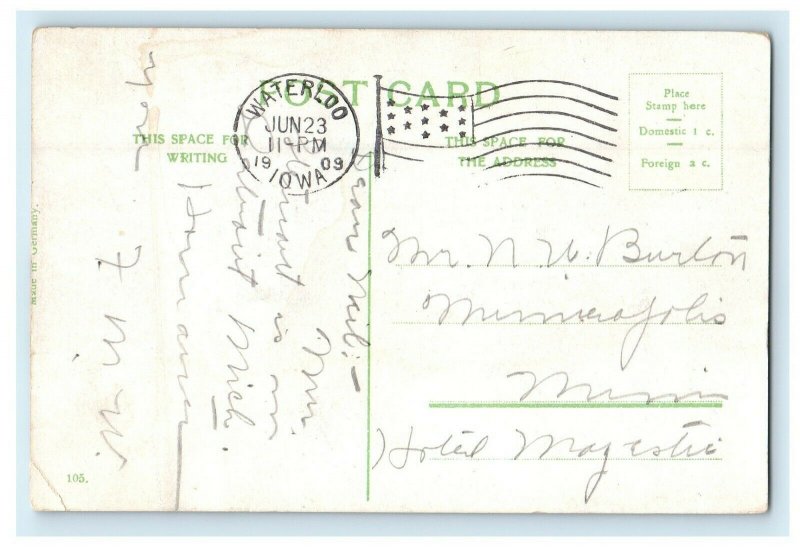 POST CARD
WATERLOO
JUN 23
11 PM
1909
IOWA
Place
Stamp here
Domestic 1 c.
Foreign 2 c.
THIS SPACE FOR
WRITING
THIS SPACE FOR
THE ADDRESS
Made in Germany.
105.
Mr. N. W. Burton
Minneapolis
Minn
Hotel Majestic
Dear Neil:—
Mr.
Stuart is in
Detroit Mich.
F. M. W.